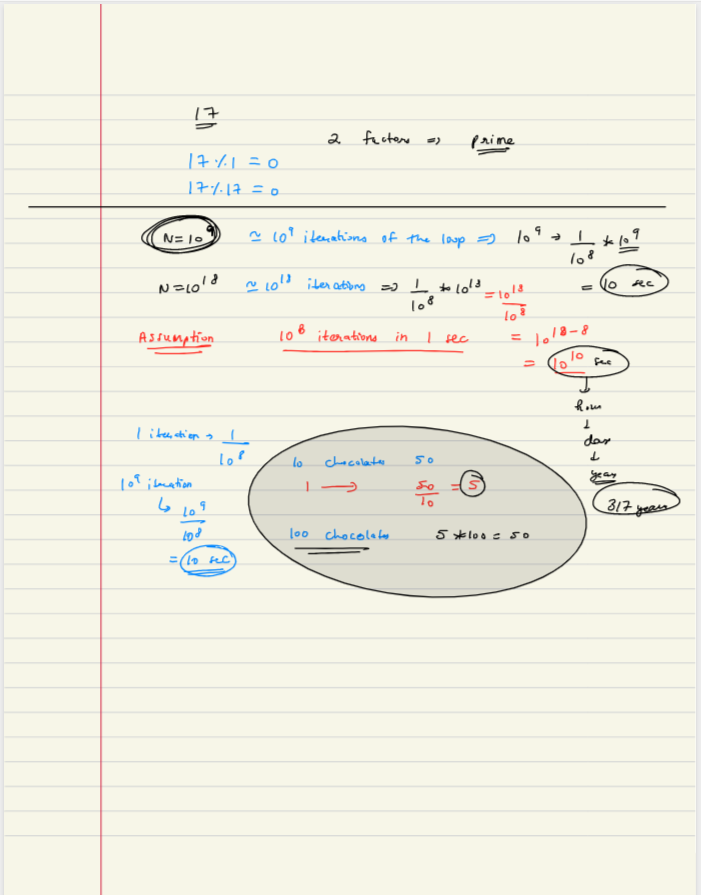 17
2 factors => prime
17 % 1 = 0
17 % 17 = 0
N=10^9 ≃ 10^9 iterations of the loop => 10^9 → 1/10^8 * 10^9
= 10 sec
N=10^18 ≃ 10^18 iterations => 1/10^8 * 10^18 = 10^18/10^8
Assumption 10^8 iterations in 1 sec = 10^18-8
= 10^10 sec
↓
hour
↓
day
↓
year
317 years
1 iteration → 1/10^8
10^9 iteration
↳ 10^9/10^8
= 10 sec
10 chocolates 50
1 → 50/10 = 5
100 chocolates 5 * 100 = 50